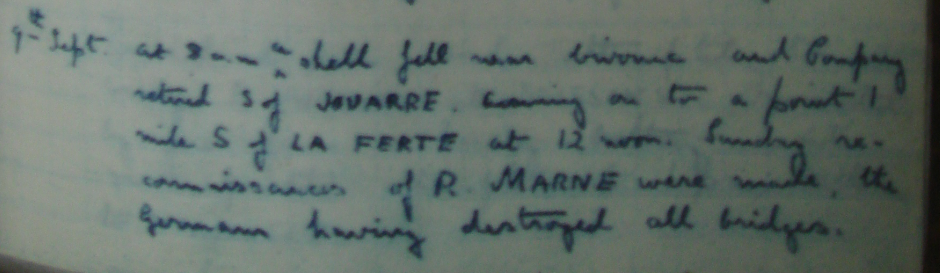 9th Sept. at 8 a.m. a shell fell near bivouac and Company
retired S of JOUARRE. Coming on to a point 1
mile S of LA FERTE at 12 noon. Sundry re-
connaissances of R. MARNE were made, the
Germans having destroyed all bridges.